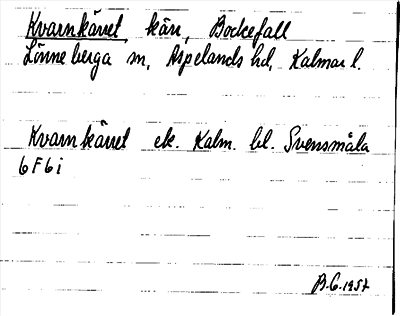 Kvarnkärret, kärr, Bockefall
Lönneberga sn, Aspelands hd, Kalmar l.
Kvarnkärret ek. Kalm. bl. Svensmåla
6F6i
B.G. 1957